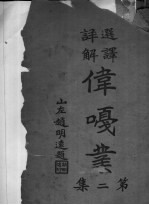 選譯
詳解
偉嘎業
第二集
山左趙明遠題